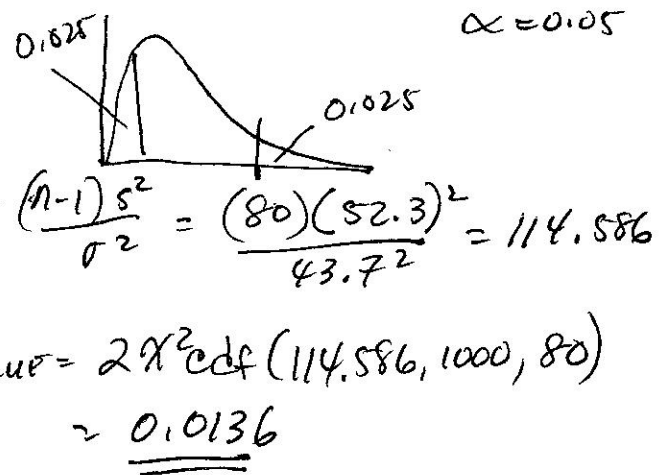 0.025
α = 0.05
0.025
(n-1)s²/σ² = (80)(52.3)²/43.7² = 114.586
= 2χ²cdf(114.586, 1000, 80)
= 0.0136